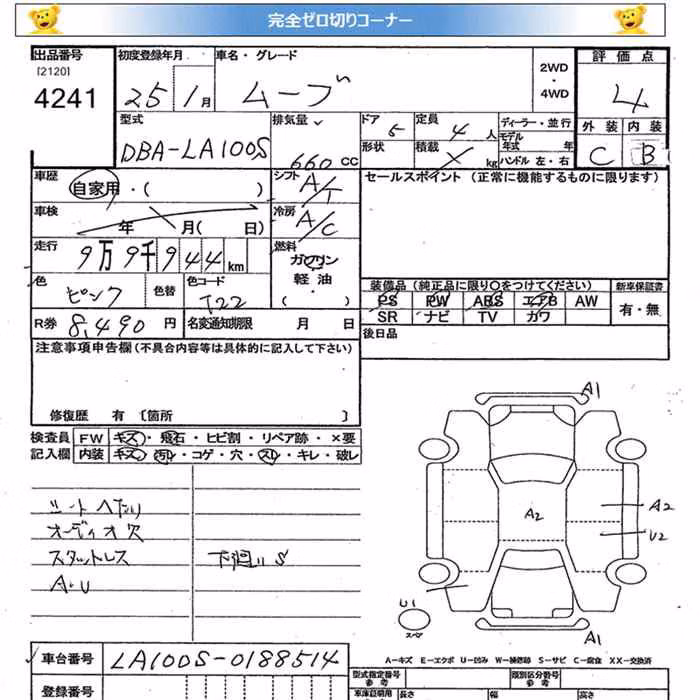 完全ゼロ切りコーナー
出品番号 初度登録年月 車名・グレード 2WD・4WD 評価点
[2120]
4241 25 1月 ムーブ 4
型式 排気量 ドア 5 定員 4人 ディーラー・並行 外装 内装
DBA-LA100S 660 CC 形状 積載 kg モデル年式 年 C B
ハンドル 左・右
車歴 自家用・( ) シフト A/T セールスポイント (正常に機能するものに限ります)
車検 年 月( 日) 冷房 A/C
走行 9万9千944km 燃料 ガソリン
軽油
・( )
色 ピンク 色替 色コード T22 装備品 (純正品に限り○をつけてください) 新車保証書
PS PW ABS エアB AW 有・無
SR ナビ TV カワ
R券 8,490円 名変通知期限 月 日 後日品
注意事項申告欄 (不具合内容等は具体的に記入して下さい)
修復歴 有 [箇所 ]
検査員 FW キズ・飛石・ヒビ割・リペア跡・×要
記入欄 内装 キズ・汚レ・コゲ・穴・スレ・キレ・破レ
シートへたり
オーディオ欠
スタットレス 下廻りS
A・U
A1
A2
A2
U2
U1
スペア
A1
車台番号 LA100S-0188514
A-キズ E-エクボ U-凹み W-補修跡 S-サビ C-腐食 XX-交換済
型式指定番号 類別区分番号
参考 参考
登録番号 車庫証明用 長さ 幅 高さ